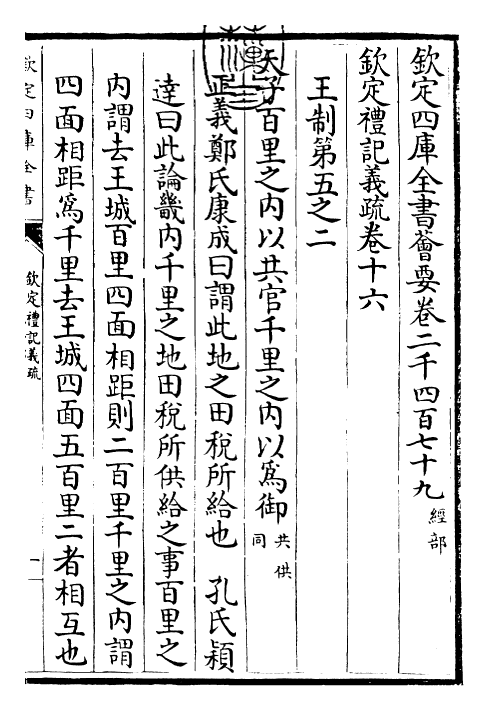 欽定四庫全書薈要卷二千四百七十九 經部
欽定禮記義疏卷十六
王制第五之二
天子百里之内以共官千里之内以爲御 共供同
正義鄭氏康成曰謂此地之田稅所給也 孔氏穎
達曰此論畿内千里之地田稅所供給之事百里之
内謂去王城百里四面相距則二百里千里之内謂
四面相距爲千里去王城四面五百里二者相互也
欽定四庫全書
欽定禮記義疏
一